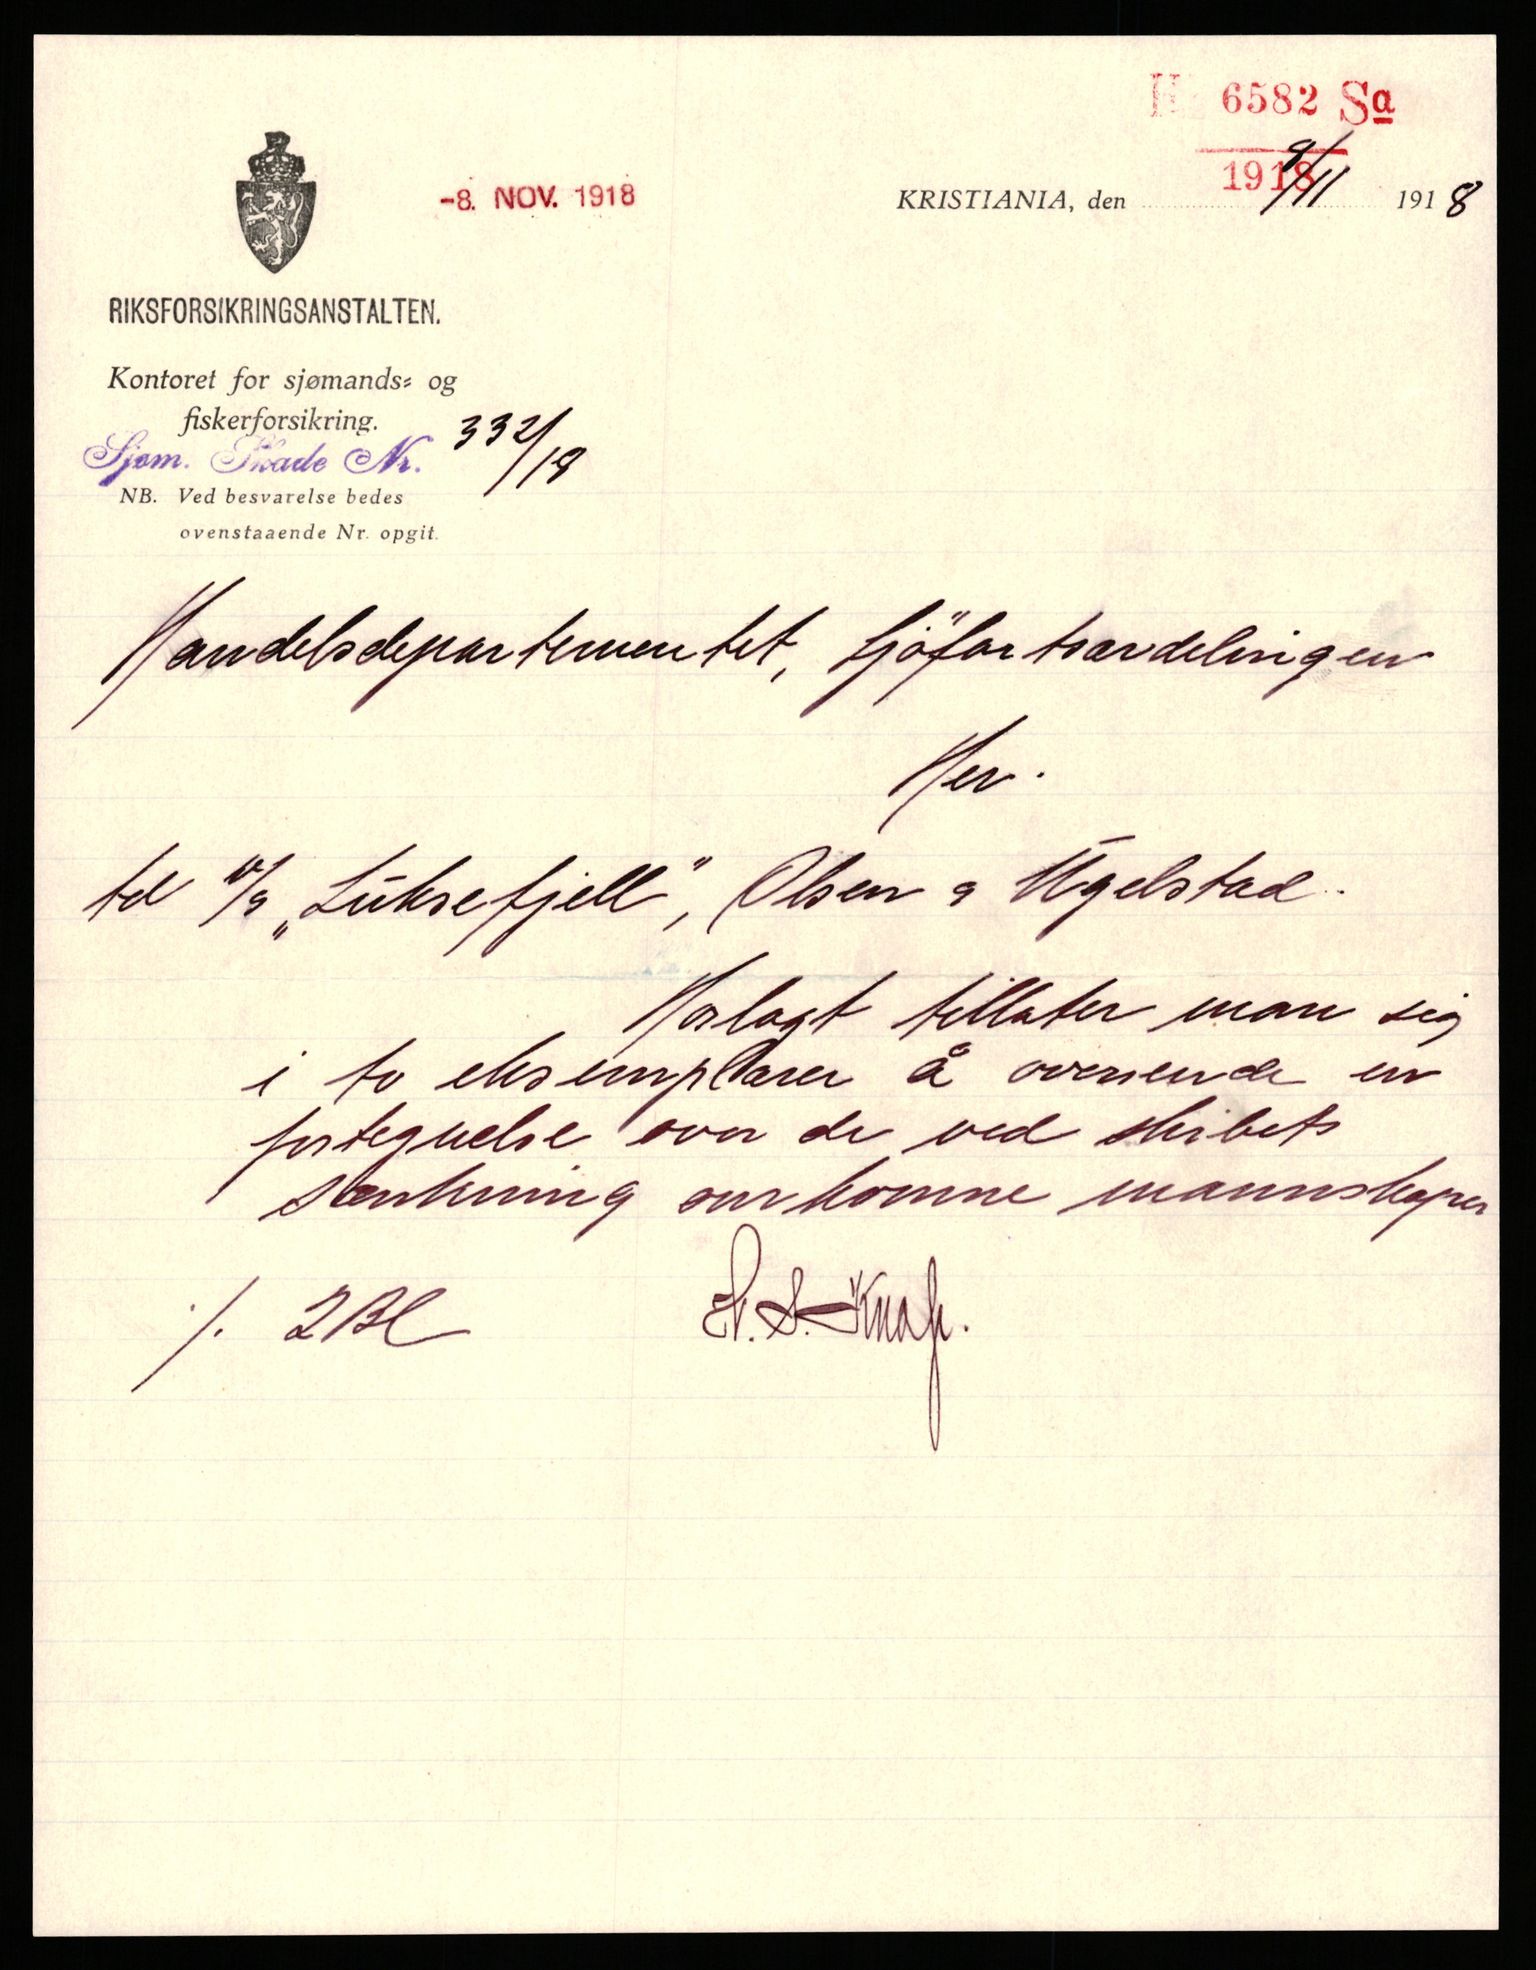 H 6582 Sa
1918
-8. NOV. 1918
KRISTIANIA, den 9/11 1918
RIKSFORSIKRINGSANSTALTEN.
Kontoret for sjømands= og
fiskerforsikring.
Sjøm. Skade Nr. 332/18
NB. Ved besvarelse bedes
ovenstaaende Nr. opgit.
Handelsdepartementet, Sjöfartsavdelingen
Her.
td D/S „Luksefjell", Olsen & Ugelstad.
Hoslagt tillater man sig
i to eksemplarer å oversende en
fortegnelse over de ved skibets
sænkning omkomne mannskaper
./. 2 Bl
S. Knap.